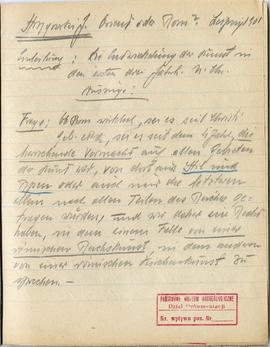 Strzygowski J. Orient oder Rom? Leipzig 1901
Einleitung: Die Entwickelung der Kunst in
den ersten drei Jahrh. n. Chr.
Auszüge:
Frage: Ob Rom wirklich, sei es seit Christi
Geb. etwa, sei es seit dem 4 Jahrh. die
herrschende Vormacht auf allen Gebieten
der Kunst war, von dort aus Stil und
Typen oder auch nur die letzteren
allein nach allen Teilen des Reiches ge-
tragen wurden, und wir daher ein Recht
haben, in dem einen Falle von einer
römischen Reichskunst, in dem anderen
von einer römischen Kirchenkunst zu
sprechen. –
PAŃSTWOWE MUZEUM ARCHEOLOGICZNE
Dział Dokumentacji
Ks. wpływu poz. Nr